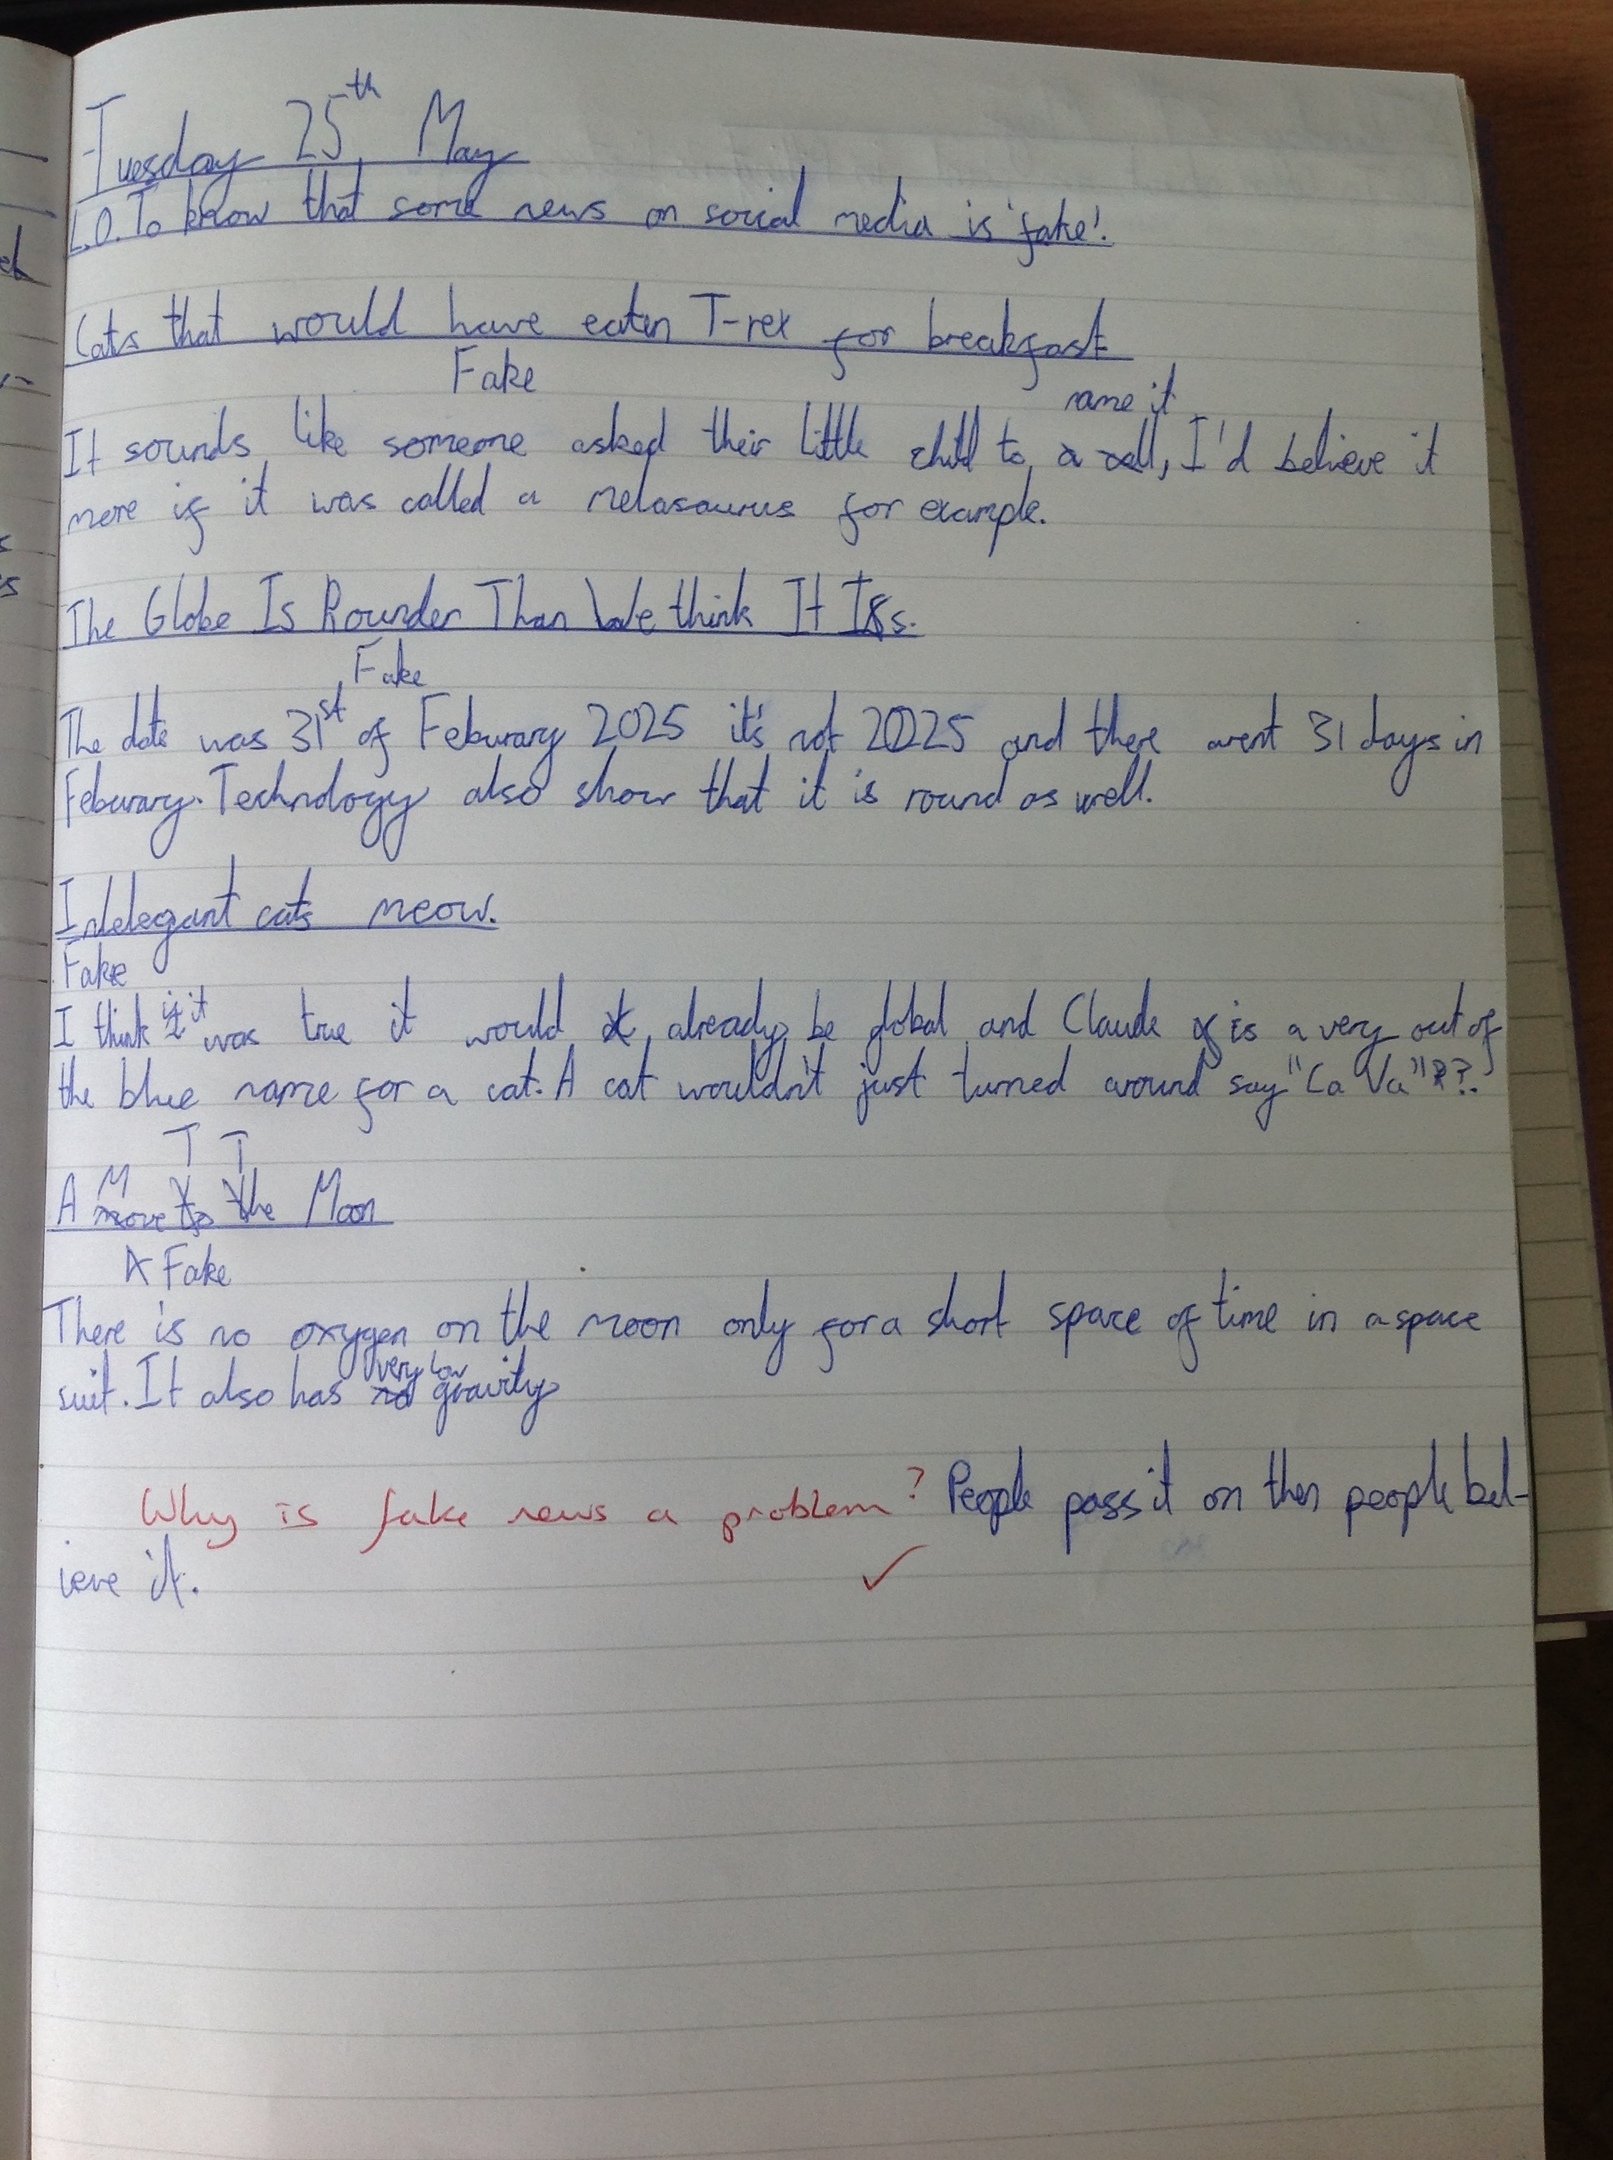 Tuesday 25th May
L.O. To know that some news on social media is 'fake'.
Cats that would have eaten T-rex for breakfast
Fake
name it
It sounds like someone asked their little child to a call, I'd believe it
more if it was called a melasaurus for example.
The Globe Is Rounder Than We think It Is.
Fake
The date was 31st of Feburary 2025 it's not 2025 and there arent 31 days in
Feburary. Technology also show that it is round as well.
Intelegant cats meow.
Fake
I think if it was true it would already be global and Claude is a very out of
the blue name for a cat. A cat wouldn't just turned around say "Ca Va"??.
A Move To The Moon
Fake
There is no oxygen on the moon only for a short space of time in a space
suit. It also has very low gravity
Why is fake news a problem? People pass it on then people bel-
ieve it.